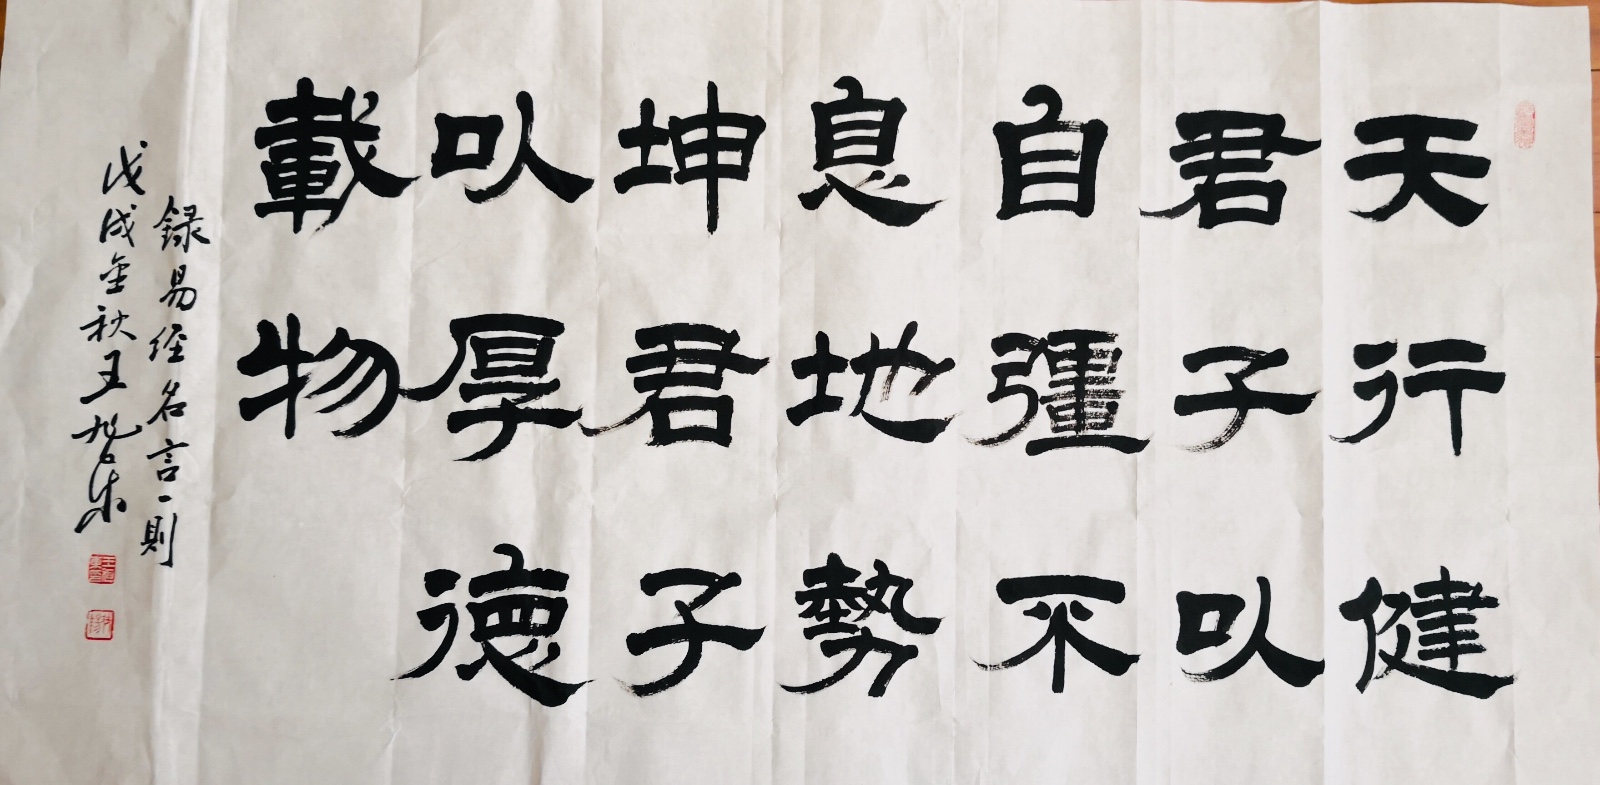 天行健
君子㠯
自彊不
息地勢
坤君子
㠯厚德
載物
録易经名言一則
戊戌金秋王旭东